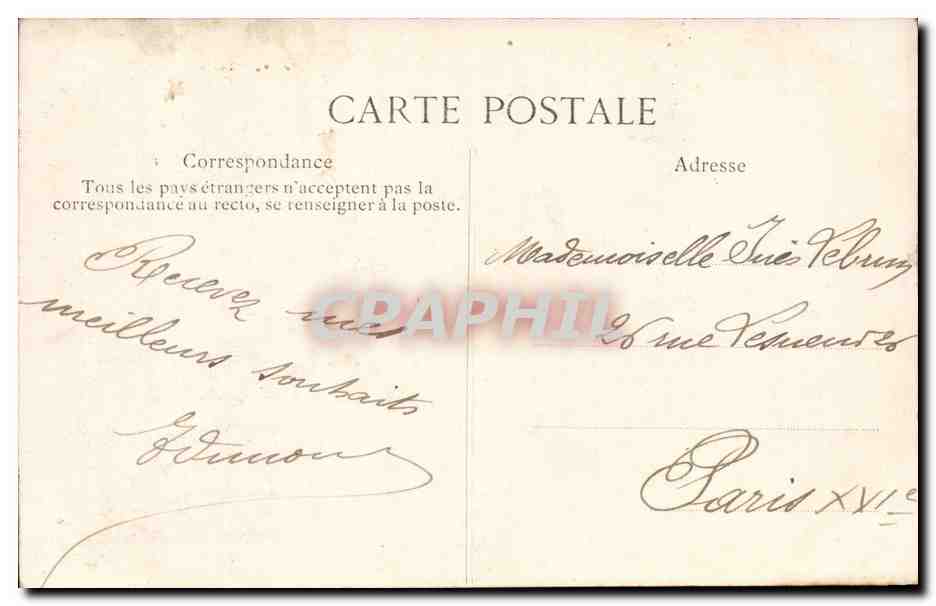 CARTE POSTALE
Correspondance
Tous les pays étrangers n'acceptent pas la
correspondance au recto, se renseigner à la poste.
Recevez mes
meilleurs souhaits
Adresse
Mademoiselle Inès Lebrun
26 rue
Paris XVIe
CPAPHIL